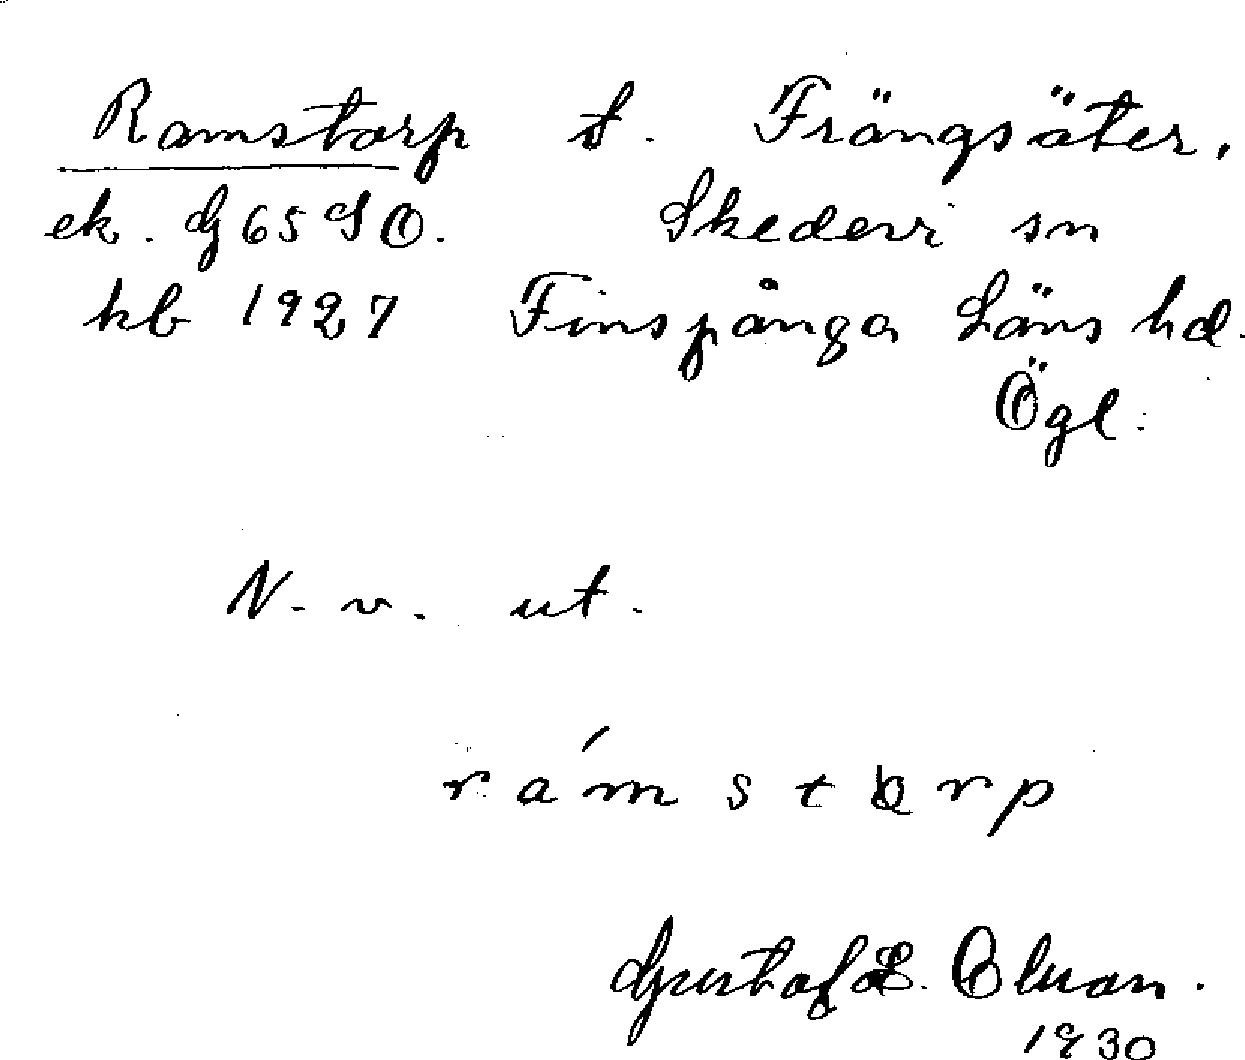 Ramstorp t. Frängsäter,
ek. G65SO. Skedevi sn
hb 1927 Finspånga Läns hd.
Ögl.
N. v. ut.
rámstorp
Gustaf L.
1930